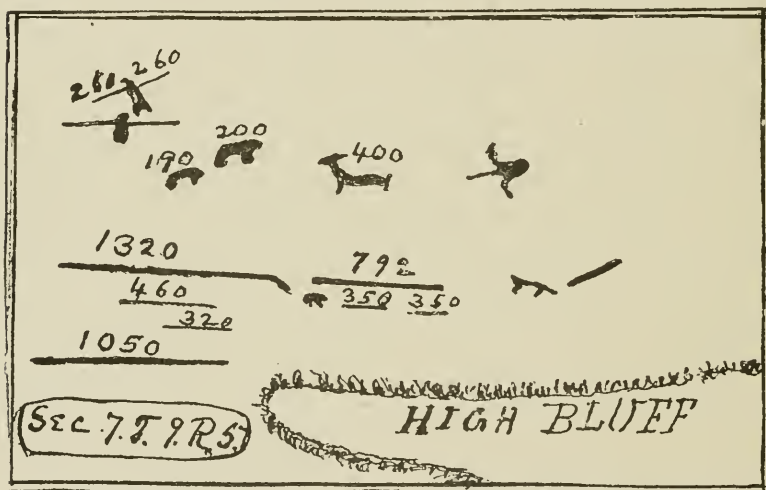 260 260
200
190
400
1320
792
460
350 350
320
1050
SEC. 7. T. 9. R. 5.
HIGH BLUFF